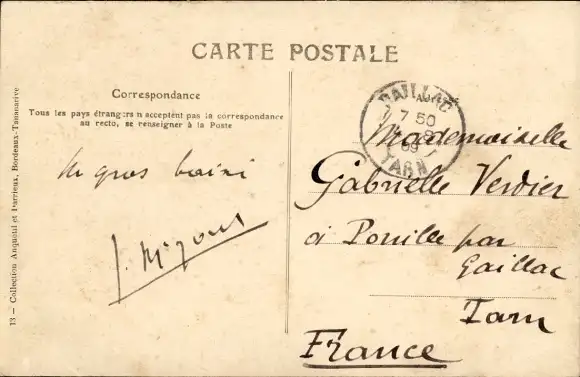 CARTE POSTALE
Correspondance
Tous les pays étrangers n acceptent pas la correspondance
au recto, se renseigner à la Poste
13 — Collection Anquetil et Darrieux, Bordeaux-Tananarive
GAILLAC
7 50
09
TARN
un gros
Mademoiselle
Gabrielle Verdier
à Pouille par
Gaillac
Tarn
France